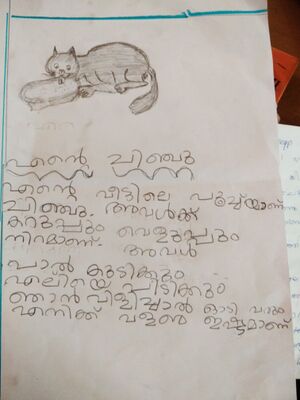 എന്റെ ചിഞ്ചു
എന്റെ വീട്ടിലെ പൂച്ചയാണ്
ചിഞ്ചു. അവൾക്ക്
കറുപ്പും വെളുപ്പും
നിറമാണ്. അവൾ
പാൽ കുടിക്കും
എലിയെ പിടിക്കും
ഞാൻ വിളിച്ചാൽ ഓടി വരും
എനിക്ക് വളരെ ഇഷ്ടമാണ്